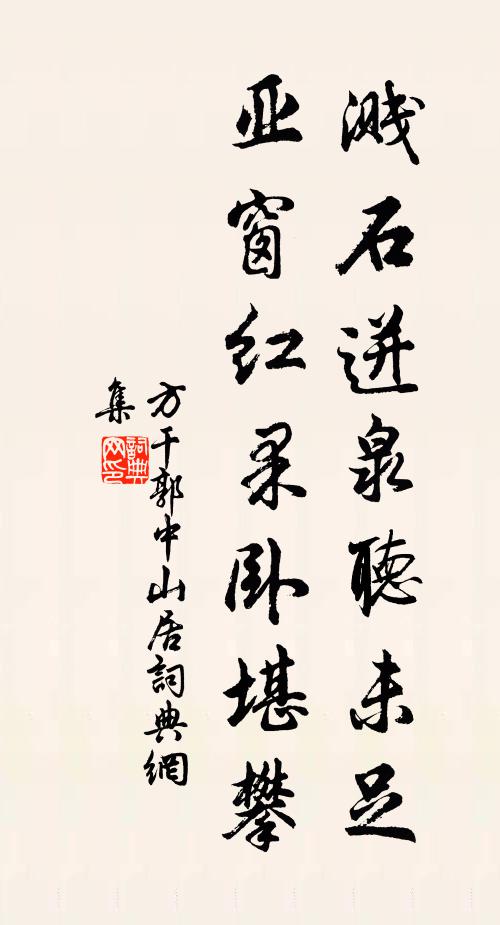 溅石迸泉聴未足
亚窗红果卧堪攀
方干郭中山居詞典網
集
詞典网印